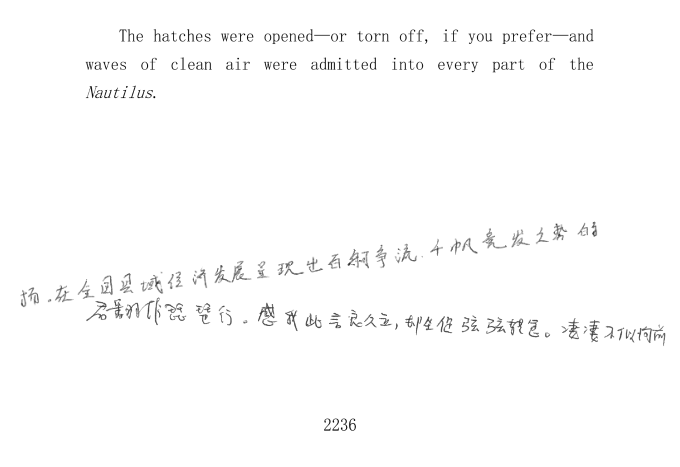 The hatches were opened—or torn off, if you prefer—and
waves of clean air were admitted into every part of the
Nautilus.
扬。在全国县域经济发展呈现出百舸争流、千帆竞发之势的
君翻作琵琶行。感我此言良久立，却坐促弦弦转急。凄凄不似向前
2236